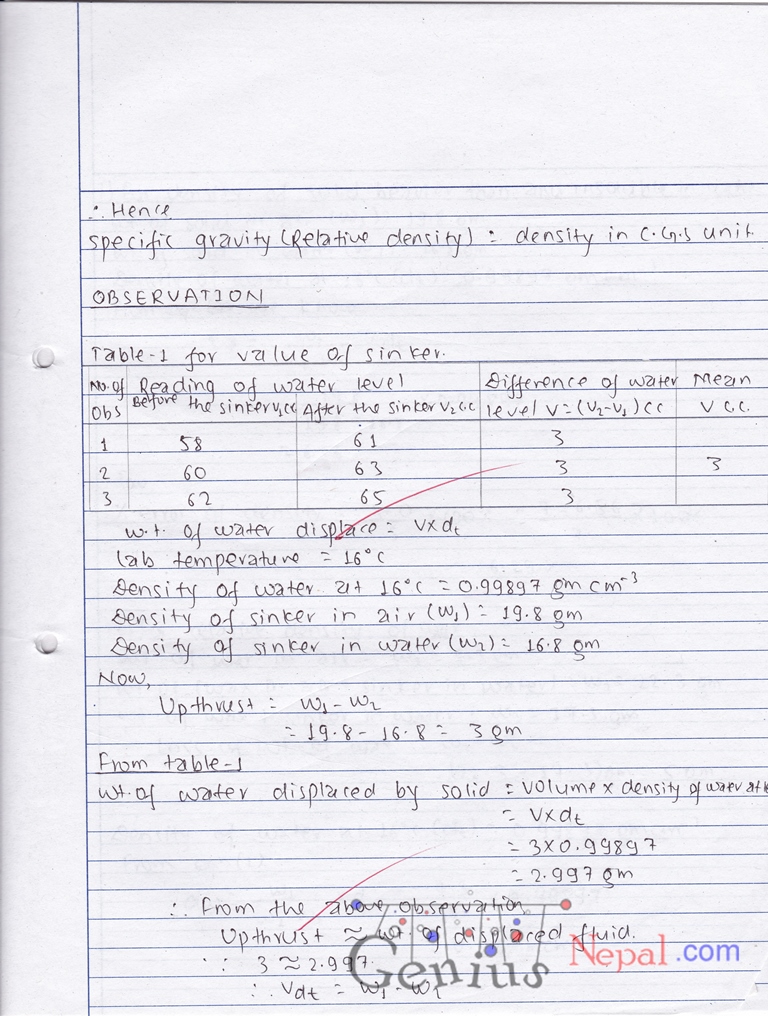 ∴ Hence
specific gravity (Relative density) = density in C.G.S unit.
OBSERVATION
Table-1 for value of sinker.
No. of Obs | Reading of water level | Difference of water level V=(V2-V1) CC | Mean V C.C.
Before the sinker V1 CC | After the sinker V2 C.C
1 58 61 3
2 60 63 3 3
3 62 65 3
w.t. of water displace = V×dt
lab temperature = 16°C
Density of water at 16°C = 0.99897 gm cm⁻³
Density of sinker in air (W1) = 19.8 gm
Density of sinker in water (W2) = 16.8 gm
Now,
Upthrust = W1 - W2
= 19.8 - 16.8 = 3 gm
From table-1
wt. of water displaced by solid = volume × density of water at
= V×dt
= 3×0.99897
= 2.997 gm
∴ From the above observation,
Upthrust ≈ wt of displaced fluid.
∵ 3 ≈ 2.997.
Genius Nepal.com
∴ Vdt = W1 - W2